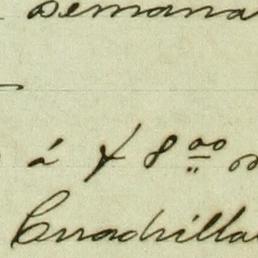 semana
á $ 8.00
Cuadrilla